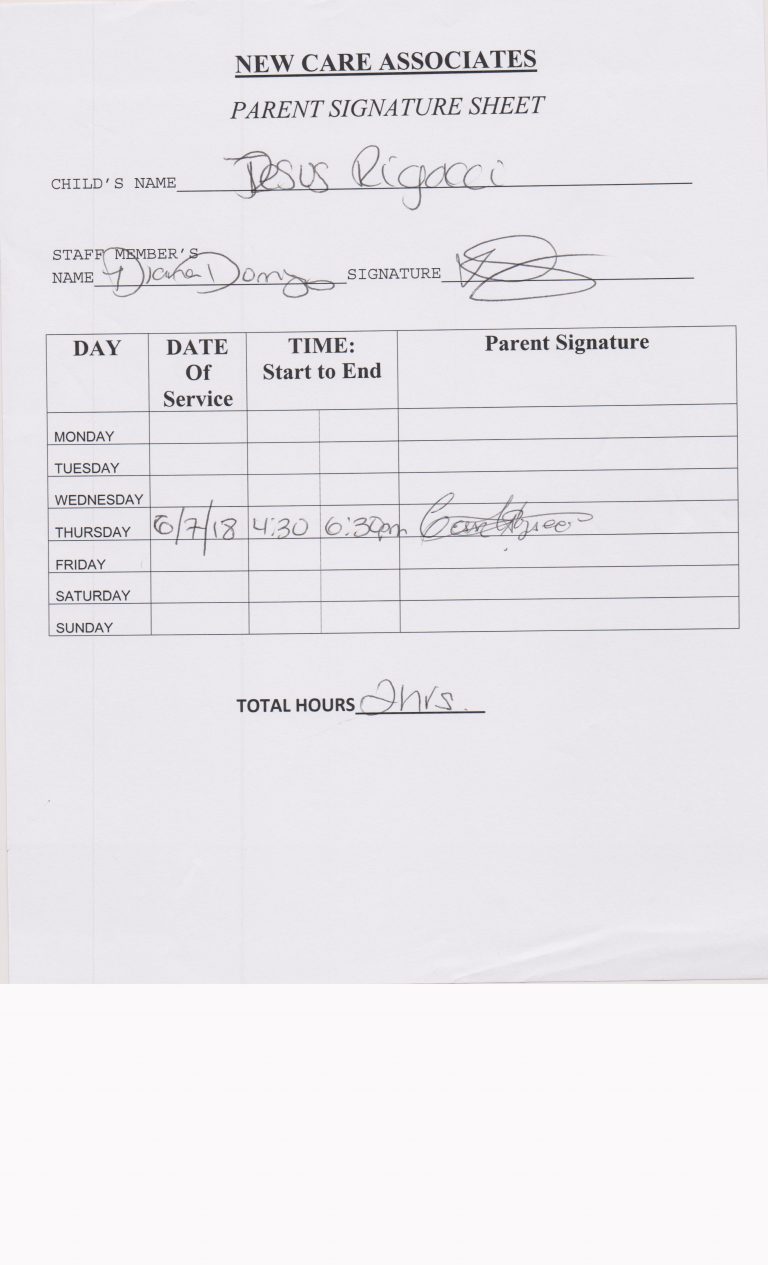 NEW CARE ASSOCIATES
PARENT SIGNATURE SHEET
CHILD'S NAME Jesus Rigacci
STAFF MEMBER'S
NAME Diana SIGNATURE
DAY DATE Of Service TIME: Start to End Parent Signature
MONDAY
TUESDAY
WEDNESDAY
THURSDAY 6/7/18 4:30 6:30pm
FRIDAY
SATURDAY
SUNDAY
TOTAL HOURS 2hrs.